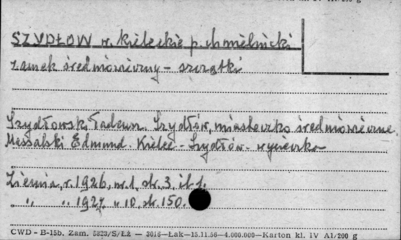 SZYDŁÓW w. kieleckie p. chmielnicki
zamek średniowieczny - szczątki
Szydłowski Tadeusz. Szydłów, miasteczko średniowieczne.
Massalski Edmund - Kielce - Szydłów - wycieczka
Ziemia, r. 1926, nr. 1, str. 3, il. 1.
" , " 1927, " 10, str. 150.
CWD - B-15b. Zam. 5823/S/Łż — 3016—Łak—15.11.56—4.000.000—Karton kl. IV A1/200 g